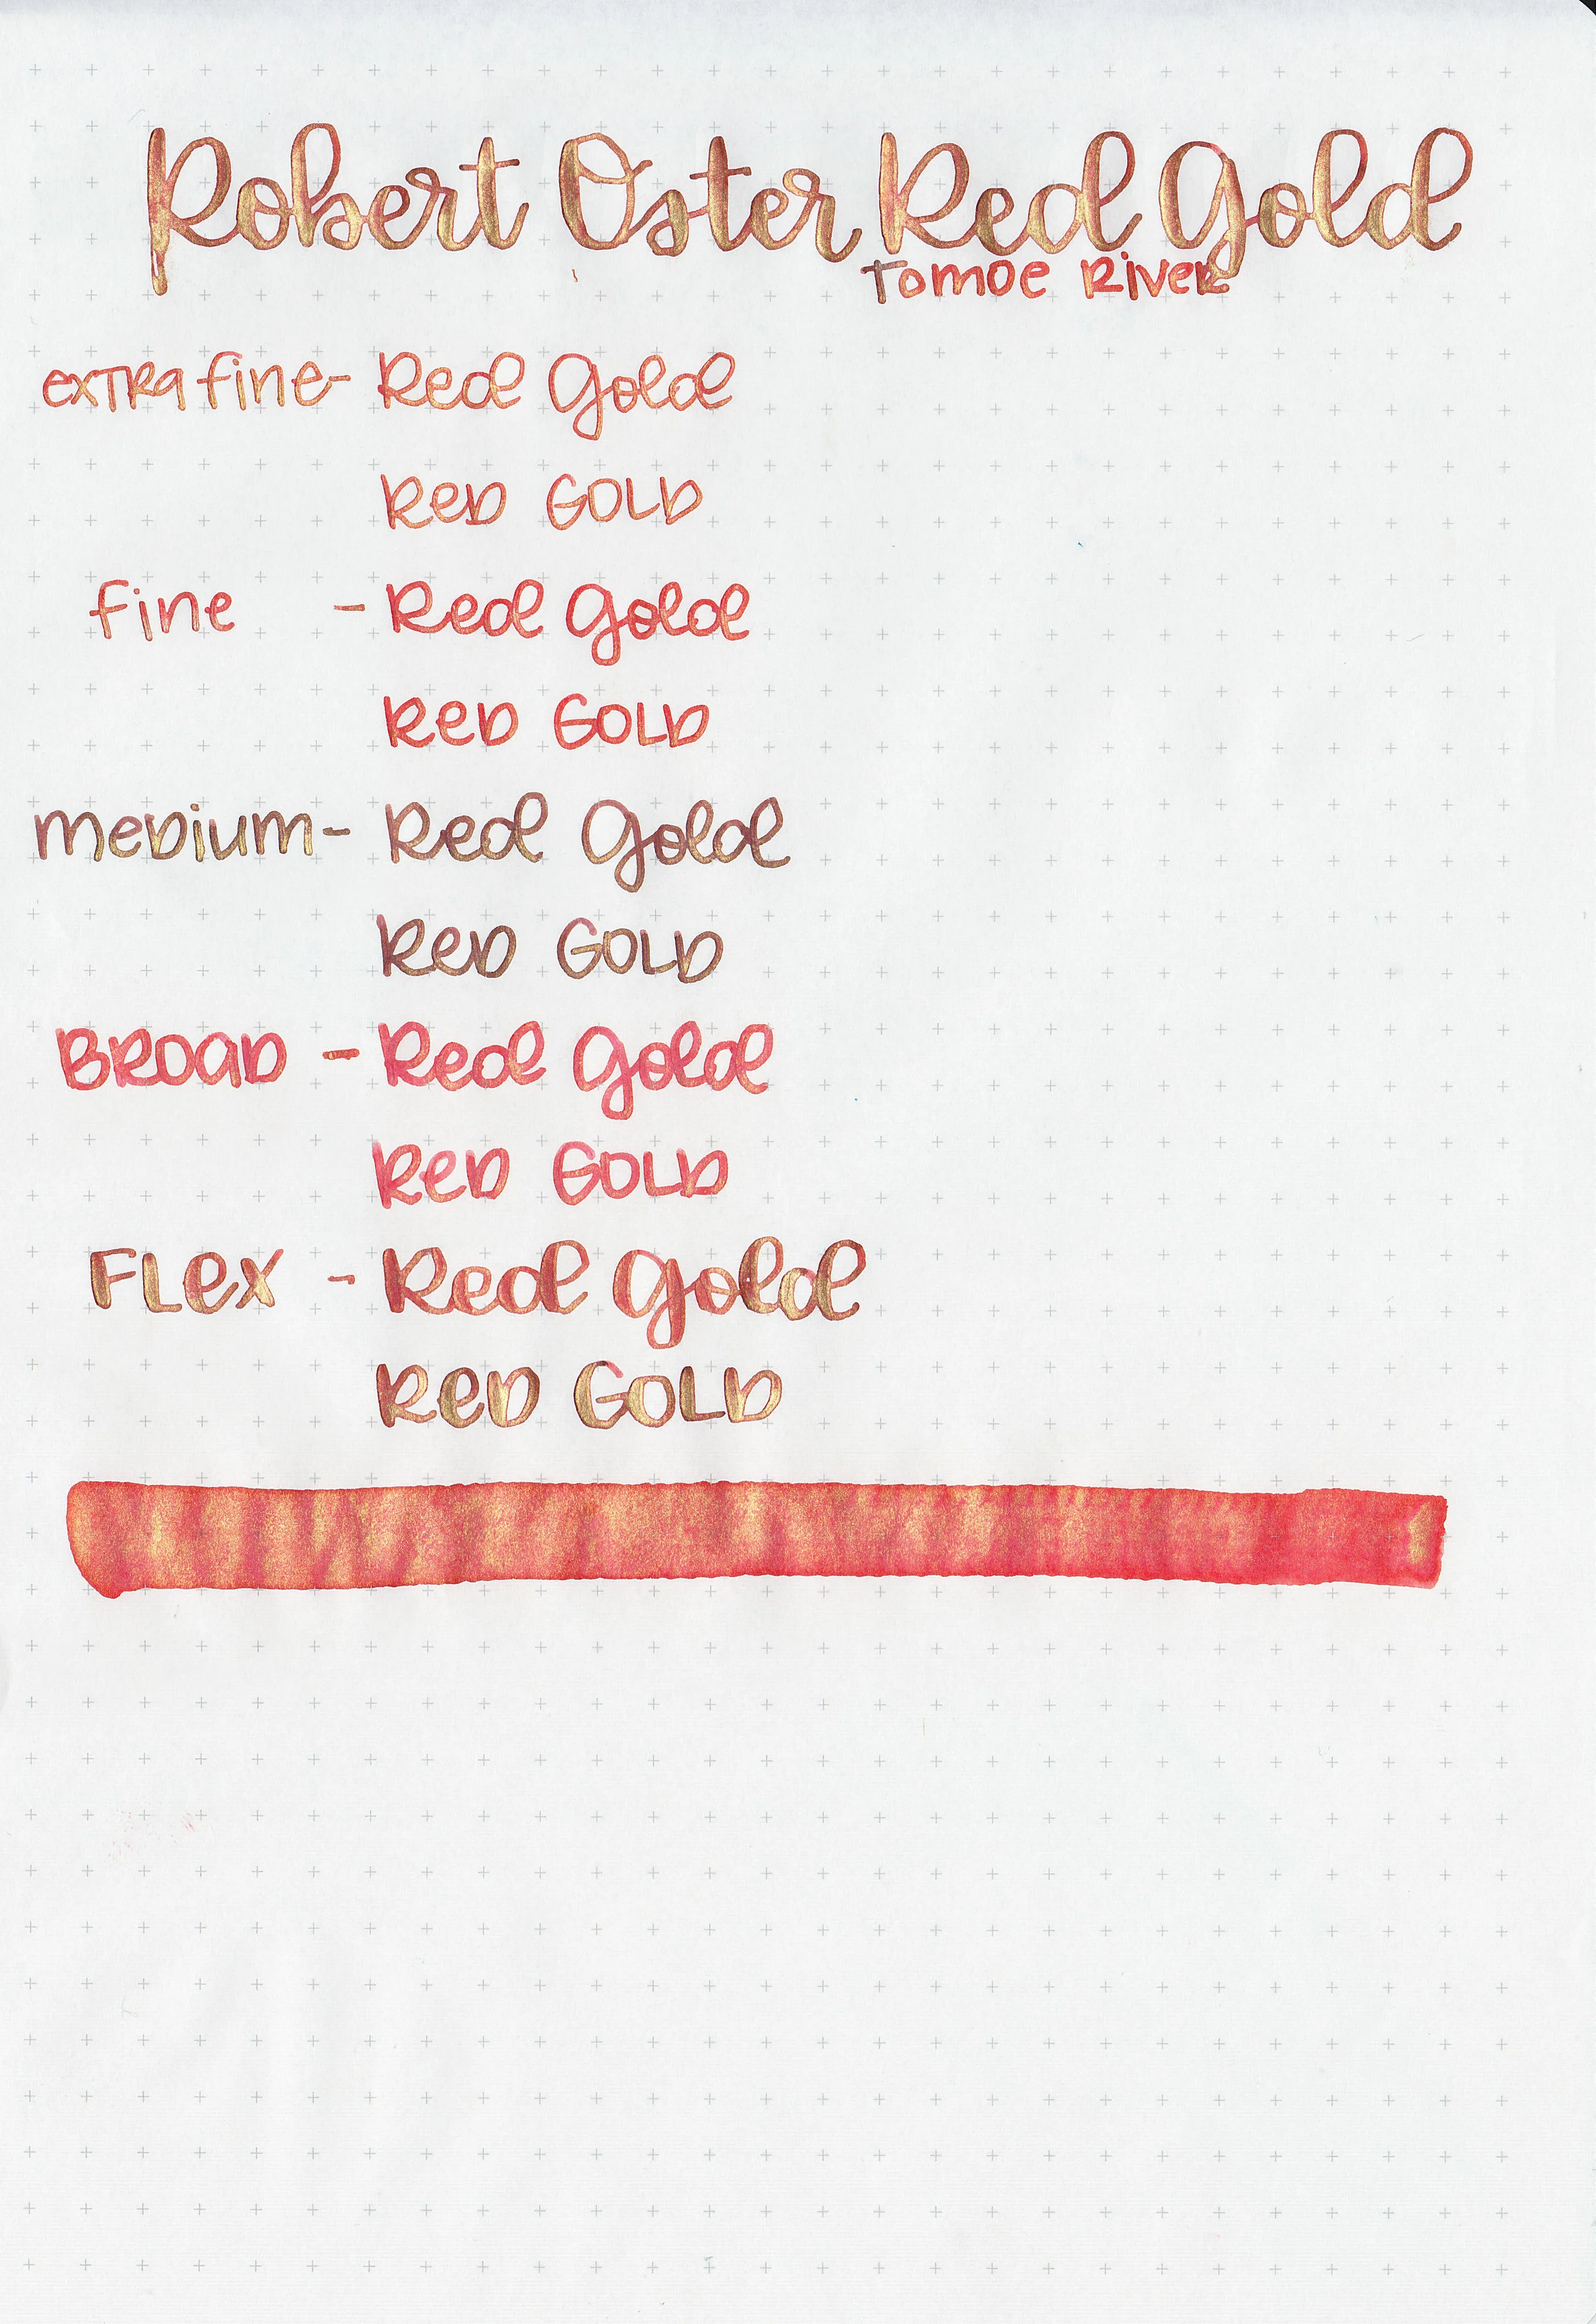 Robert Oster Red Gold
Tomoe River
extra fine- Red Gold
Red Gold
fine - Red Gold
Red Gold
medium- Red Gold
Red Gold
Broad - Red Gold
Red Gold
Flex - Red Gold
Red Gold